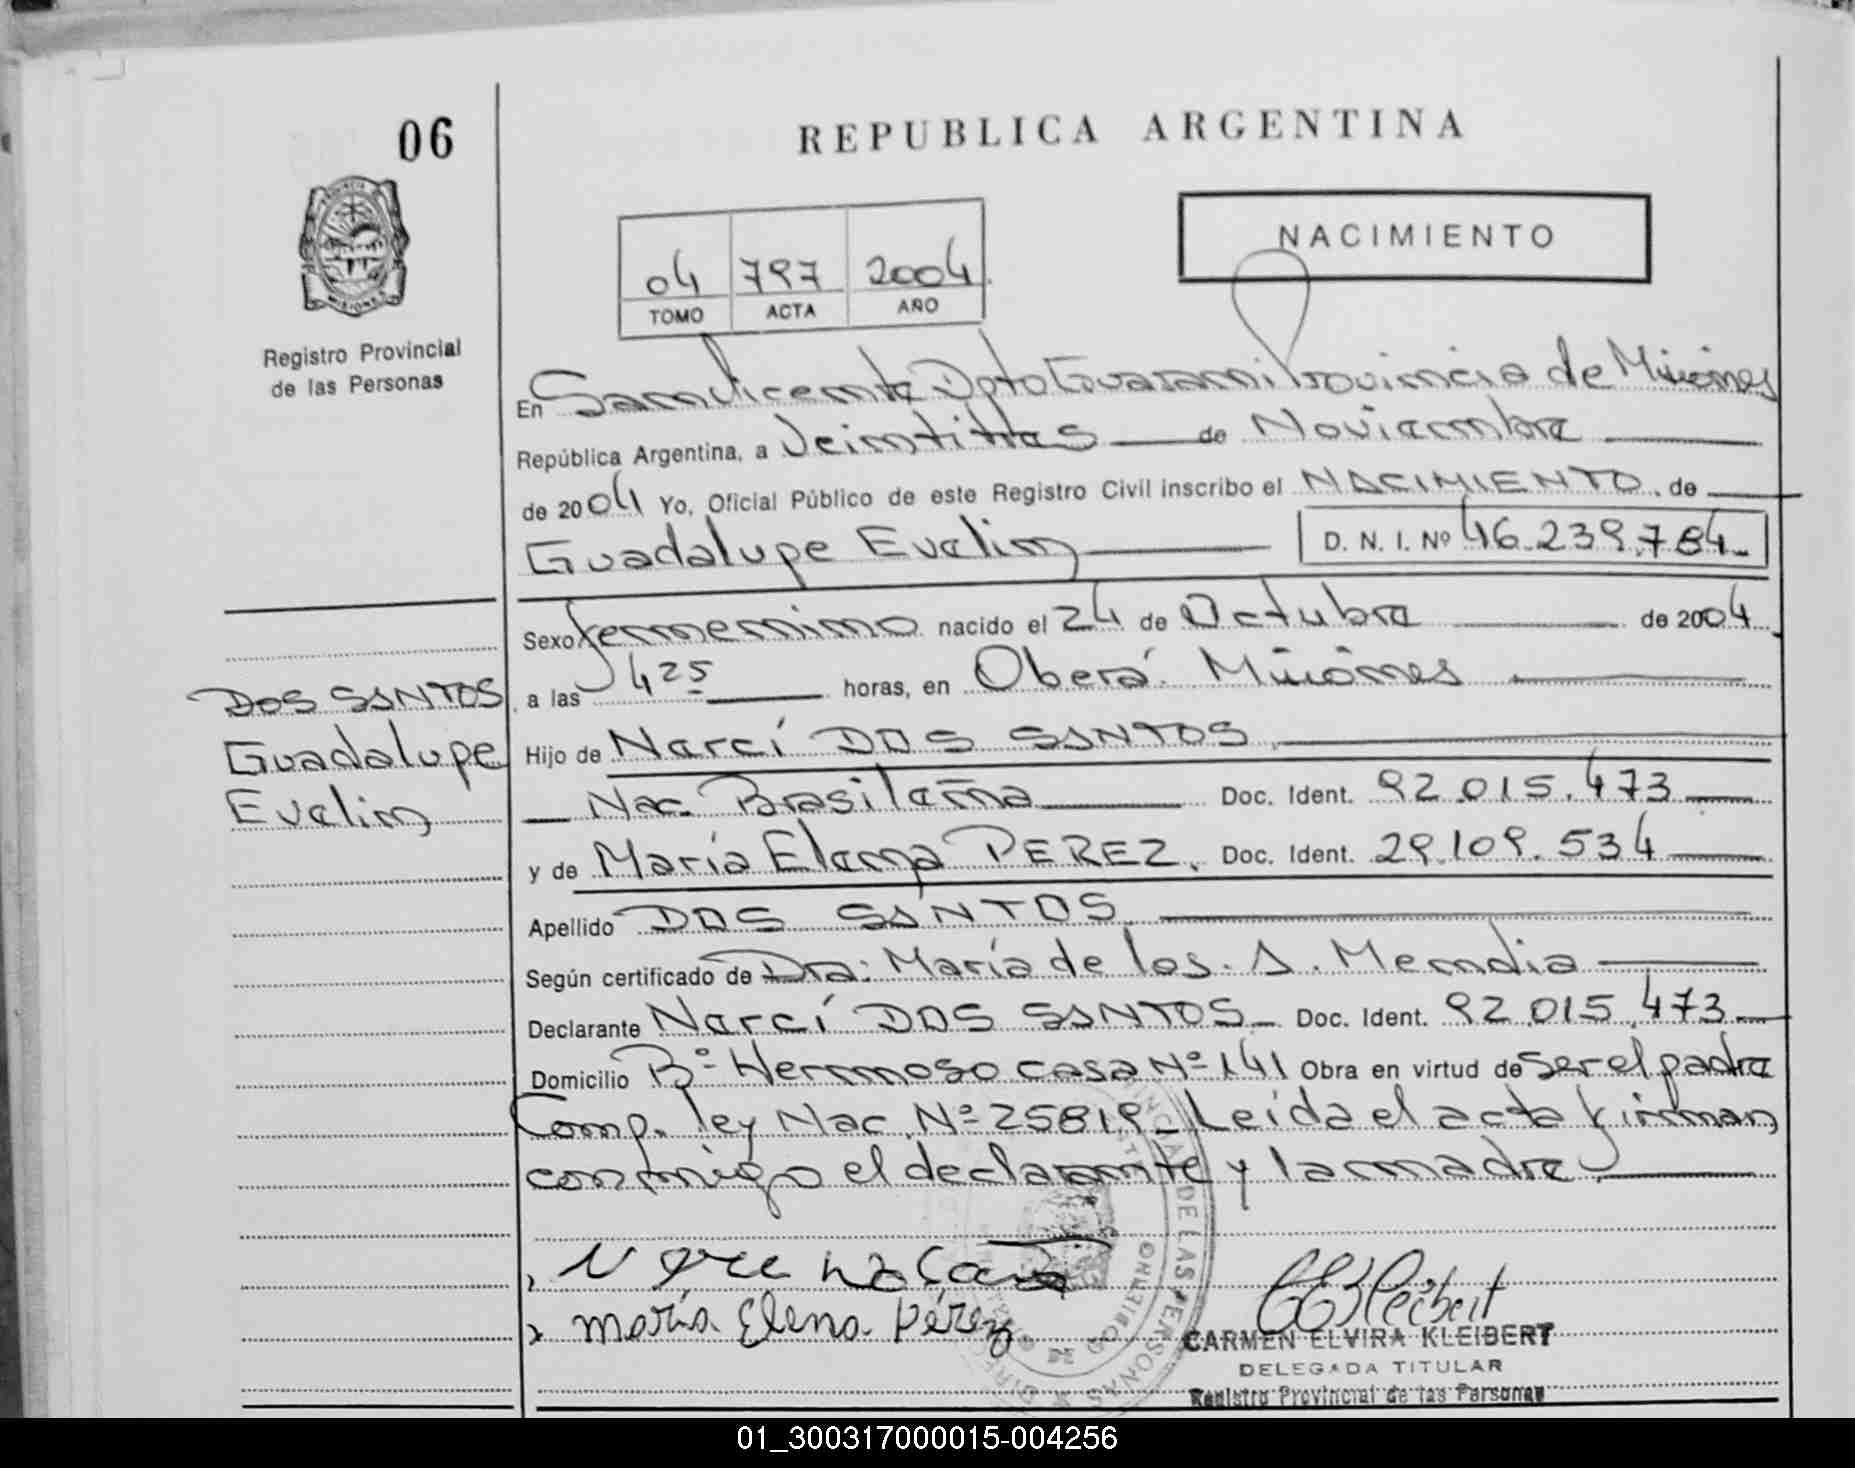 06
REPUBLICA ARGENTINA
NACIMIENTO
04 797 2004
TOMO ACTA AÑO
Registro Provincial
de las Personas
En San Vicente Dpto Guarani Provincia de Misiones
República Argentina, a Veintitres de Noviembre
de 2004 Yo, Oficial Público de este Registro Civil inscribo el NACIMIENTO. de
Guadalupe Evelin D. N. I. Nº 46.239.784
Sexo femenino nacido el 24 de Octubre de 2004
a las 4 25 horas, en Oberá. Misiones
DOS SANTOS
Guadalupe
Evelin
Hijo de Narcí DOS SANTOS
Nac. Brasileña Doc. Ident. 92.015.473
y de María Elena PEREZ. Doc. Ident. 29.109.534
Apellido DOS SANTOS
Según certificado de Dra: María de los. A. Mendia
Declarante Narcí DOS SANTOS Doc. Ident. 92.015.473
Domicilio Bº Hermoso casa Nº 141 Obra en virtud de ser el padre
Comp. ley Nac. Nº 25819 Leída el acta firman
conmigo el declarante y la madre
María Elena Pérez
CARMEN ELVIRA KLEIBERT
DELEGADA TITULAR
Registro Provincial de las Personas
01_300317000015-004256